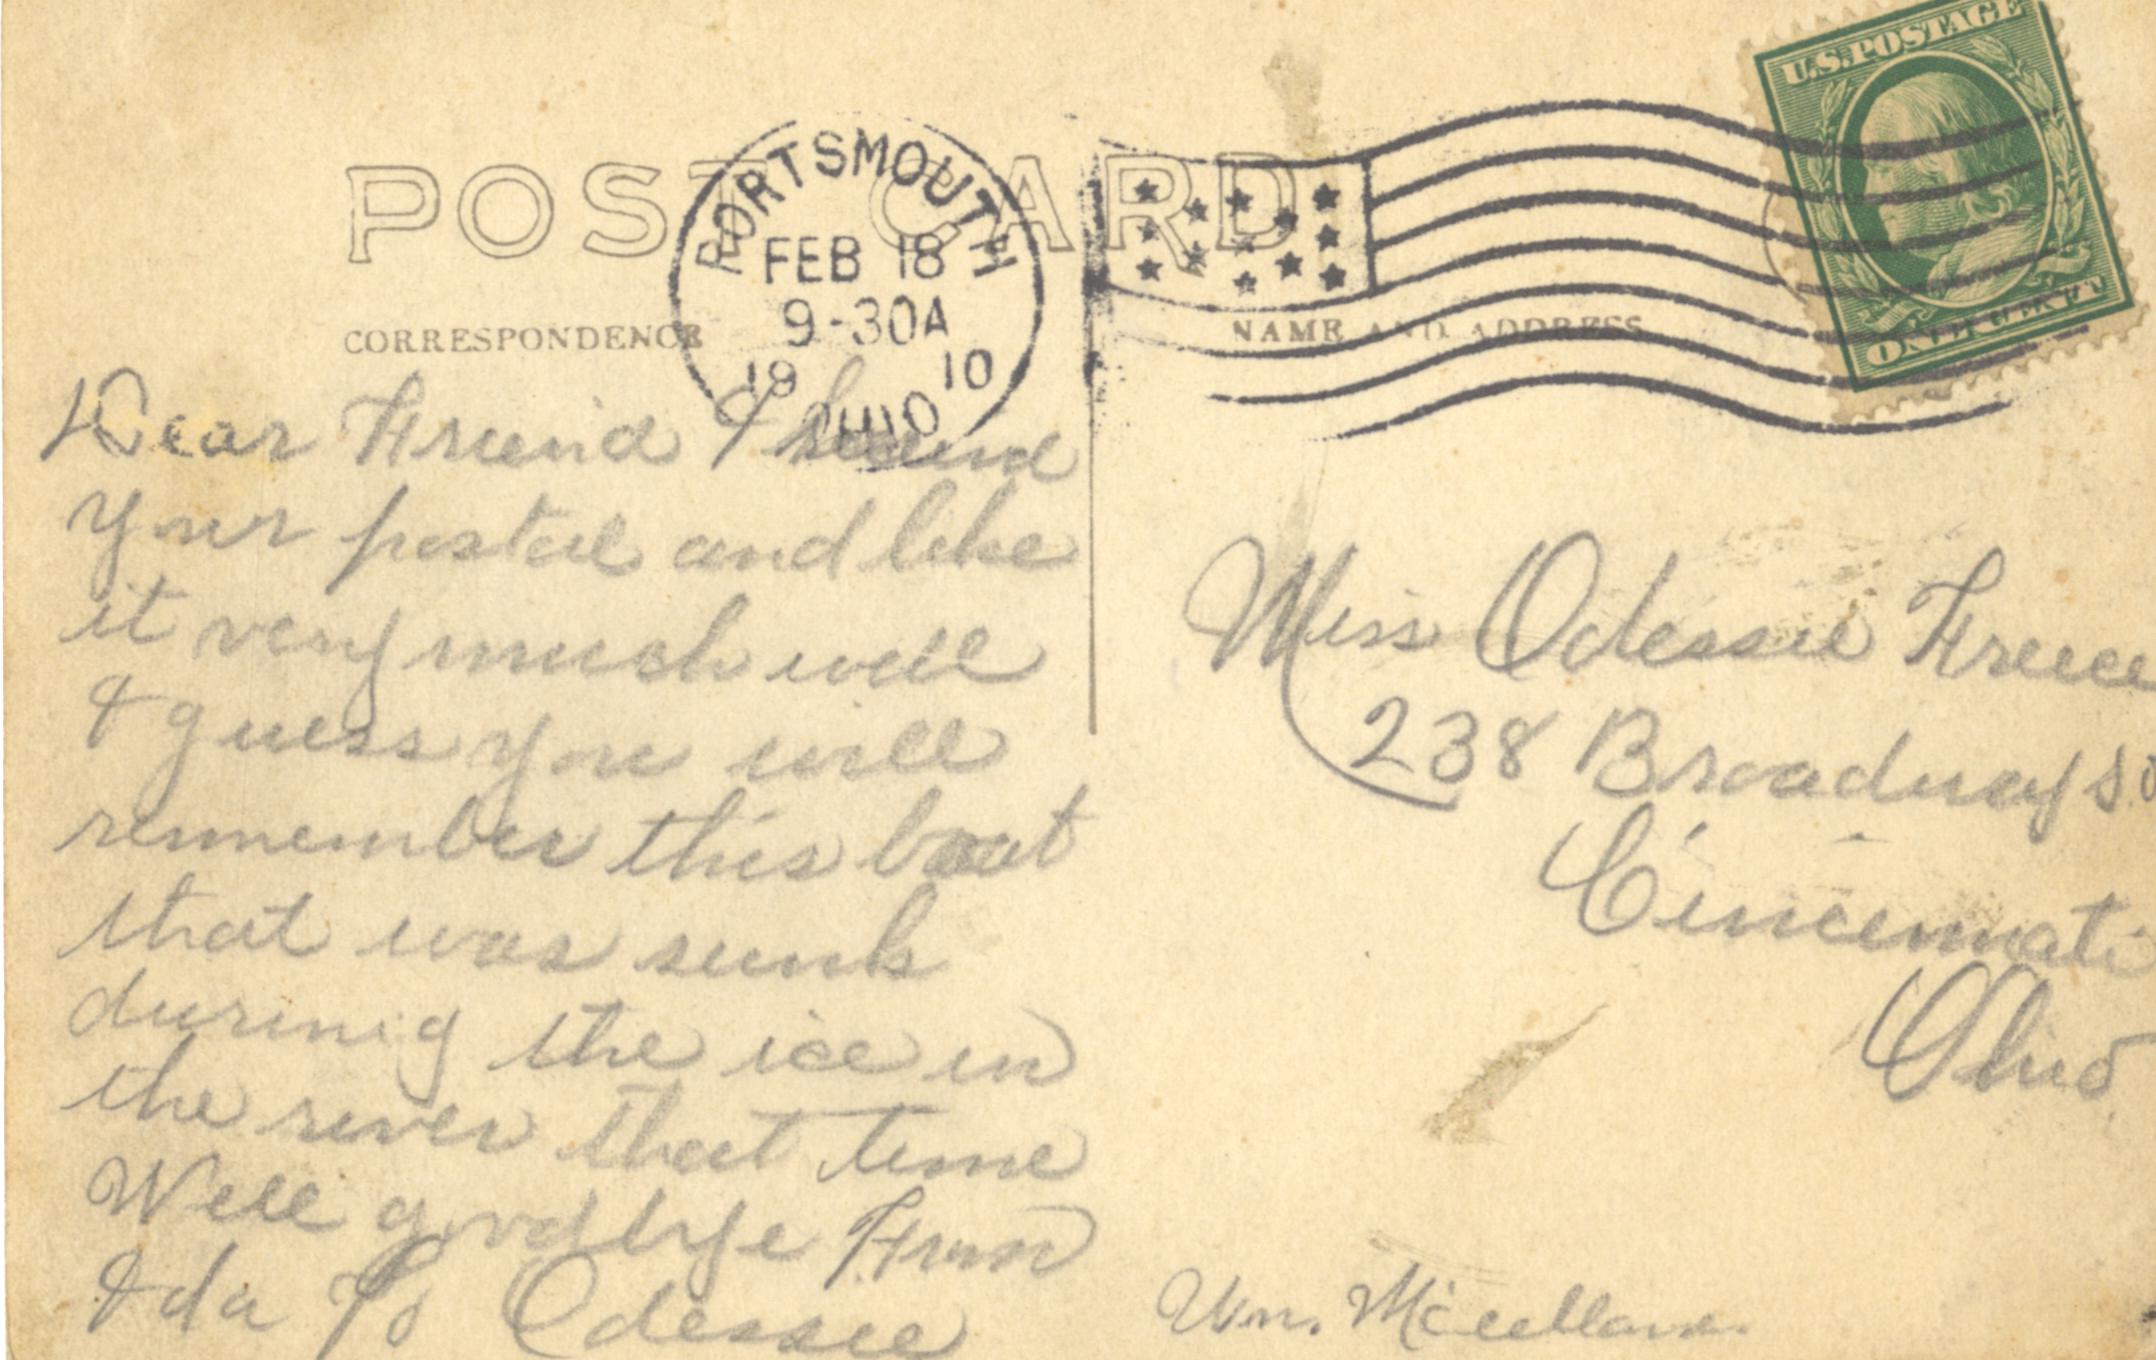 POST CARD
PORTSMOUTH
FEB 18
9-30A
19 10
OHIO
U.S. POSTAGE
ONE CENT
CORRESPONDENCE
NAME AND ADDRESS
Dear Friend I
your postal and like
it very much well
I guess you will
remember this boat
that was sunk
during the ice in
the river that time
Well goodbye From
Ida To Odessie
Miss Odessie Freece
238 Broadway
Cincinnati
Ohio.
Wm. McClellan